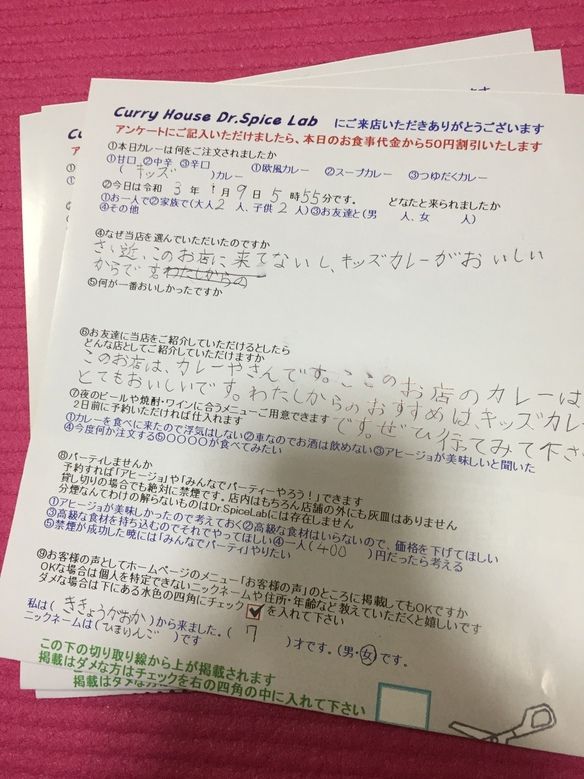 Curry House Dr.Spice Lab にご来店いただきありがとうございます
アンケートにご記入いただけましたら、本日のお食事代金から50円割引いたします
①本日カレーは何をご注文されましたか
①甘口 ②中辛 ③辛口 ①欧風カレー ②スープカレー ③つゆだくカレー
( キッズ )カレー
②今日は令和 3 年 1 月 9 日 5 時 55 分です。 どなたと来られましたか
①お一人で②家族で(大人 2 人、子供 2 人) ③お友達と(男 人、女 人)
④その他
④なぜ当店を選んでいただいたのですか
さい近、このお店に来てないし、キッズカレーがおいしい
からです。わたしからの
⑤何が一番おいしかったですか
⑥お友達に当店をご紹介していただけるとしたら
どんな店としてご紹介していただけますか
このお店は、カレーやさんです。ここのお店のカレーは
とてもおいしいです。わたしからのおすすめは、キッズカレー
⑦夜のビールや焼酎・ワインに合うメニューご用意できます
です。ぜひ行ってみて下さ
2日前に予約いただければ仕入れます
①カレーを食べに来たので浮気はしない②車なのでお酒は飲めない③アヒージョが美味しいと聞いた
④今度何か注文する⑤〇〇〇〇が食べてみたい
⑧パーティしませんか
予約すれば「アヒージョ」や「みんなでパーティーやろう!」できます
貸し切りの場合でも絶対に禁煙です。店内はもちろん店舗の外にも灰皿はありません
分煙なんてわけの解らないものはDr.SpiceLabには存在しません
①アヒージョが美味しかったので考えておく②高級な食材はいらないので、価格を下げてほしい
③高級な食材を持ち込むのでそれでやってほしい④一人( 400 )円だったら考える
⑤禁煙が成功した暁には「みんなでパーティ」やりたい
⑨お客様の声としてホームページのメニュー「お客様の声」のところに掲載してもOKですか
OKな場合は個人を特定できないニックネームや住所・年齢など教えていただくと嬉しいです
ダメな場合は下にある水色の四角にチェック ✓ を入れて下さい
私は( ききょうがおか )から来ました。( 7 )才です。(男・女)です。
ニックネームは( ひまりんご )です
この下の切り取り線から上が掲載されます
掲載はダメな方はチェックを右の四角の中に入れて下さい